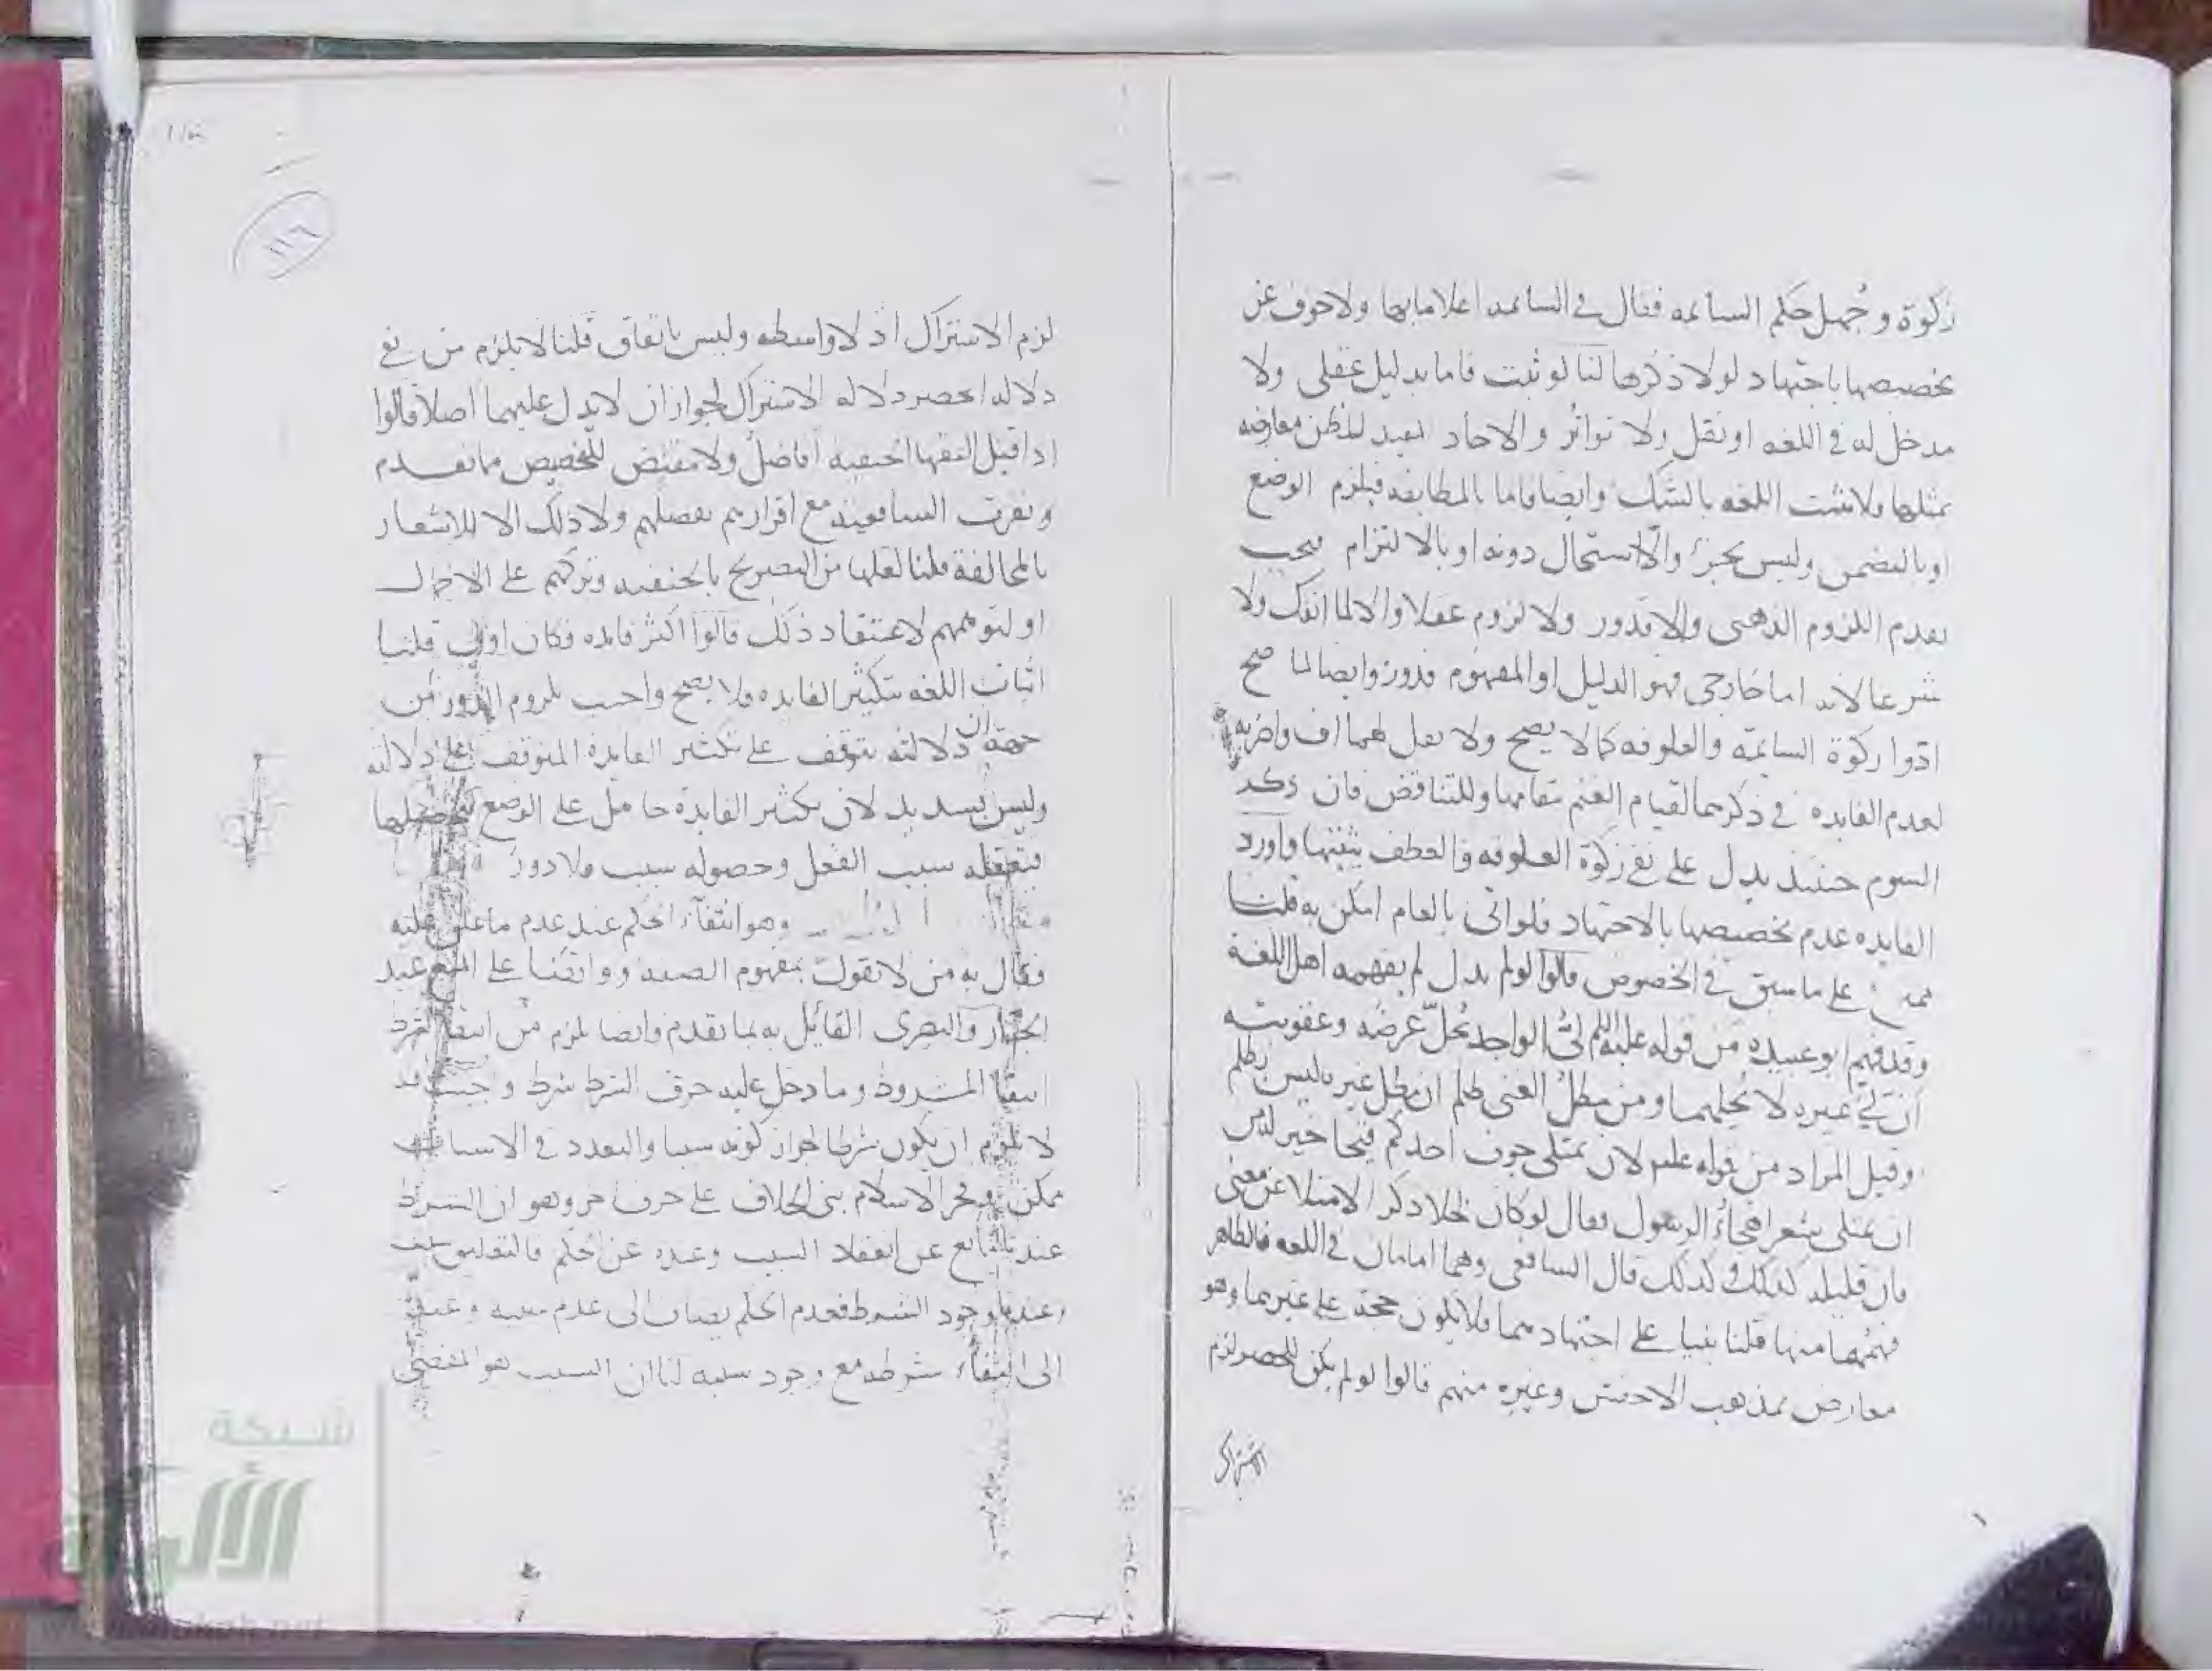 زكوة و جُهل حكم السائمه فقال في السائمه اعلاما بها ولا خوف عن
تخصيصها باجتهاد لولا ذكرها لنا لو ثبت فاما بدليل عقلى ولا
مدخل له في اللغه او نقل ولا تواتُر والاحاد تفيد الظن معارضه
بمثلها ولا تثبت اللغه بالشك وايضا فاما بالمطابقه فيلزم الوضع
او بالتضمن وليس بجزء والا استحال دونه او بالالتزام فيجب
تقدم اللزوم الذهنى والا فدور ولا لزوم عقلا والا لما انفك ولا
شرعا لانه اما خارجى فهو الدليل او المفهوم فدور وايضا لما صح
ادّوا زكوة السائمة والعلوفه كما لا يصح ولا تقل لهما اف واضربهما
لعدم الفايده في ذكرهما لقيام الغنم مقامها وللتناقض فان ذكر
السوم حينئذ يدل على نفي زكوة العلوفه والعطف يثبتها واورد
الفايده عدم تخصيصها بالاجتهاد فلو اتى بالعام امكن به قلنا
على ما سبق في الخصوص قالوا لو لم يدل لم يفهمه اهل اللغة
وقد فهم ابو عبيده من قوله عليه السلم لىُّ الواجد يُحلّ عرضه وعقوبته
ان لىّ غيره لا يُحلهما ومن مطلُ الغنى ظلم ان مطل غيره ليس بظلم
وقيل المراد من قوله عليه لان يمتلى جوف احدكم قيحا خير له من
ان يمتلى شعرا هجاءُ الرسول فقال لو كان كذلك ذكر الامتلا عن معنى
فان قليله كذلك وكذلك قال الشافعى وهما امامان في اللغه فالظاهر
فهمُهما منها قلنا بنيا على اجتهادهما فلا يكون حجة على غيرهما وهو
معارض بمذهب الاخفش وغيره منهم قالوا لو لم يكن للحصر لزم
الاشتراك
١١٦
لزم الاشتراك اذ لا واسطه وليس باتفاق قلنا لا يلزم من نفي
دلالته الحصر دلاله الاشتراك لجواز ان لا يدل عليهما اصلا قالوا
اذا قيل الفقها الحنفيه افاضلُ ولا مقتض للتخصيص مما تقدم
ونفرت الشافعية مع اقرارهم بفضلهم ولا ذلك الا للاشعار
بالمخالفة قلنا لعلها من التصريح بالحنفيه وتركهم على الاحتمال
او لتوهمهم لاعتقاد ذلك قالوا اكثر فايده فكان اولى قلنا
اثبات اللغه بتكثير الفايده فلا يصح واجيب بلزوم الدور من
جهة ان دلالته تتوقف على تكثير الفايدة المتوقف على دلالته
وليس بسديد لان تكثير الفايدة حامل على الوضع
فتعقله سبب الفعل وحصوله سبب فلا دور
وهو انتفاء الحكم عند عدم ما علق عليه
فقال به من لا يقول بمفهوم الصفه ووافقنا على المنع عبد
الجبار والبصرى القائل به بما تقدم وايضا يلزم من انتفا الشرط
انتفا المشروط وما دخل عليه حرف الشرط شرط واجيب قد
لا يلزم ان يكون شرطا لجواز كونه سببا والتعدد في الاسباب
ممكن وفخر الاسلام بنى الخلاف على حرف اخر وهو ان الشرط
عندنا مانع عن انعقاد السبب وعنده عن الحكم فالتعليق سبب
عندنا وجود الشرط فعدم الحكم يضاف الى عدم سببه وعنده
الى انتفاء شرطه مع وجود سببه لنا ان السبب هو المفضى
شبكة
الألوكة